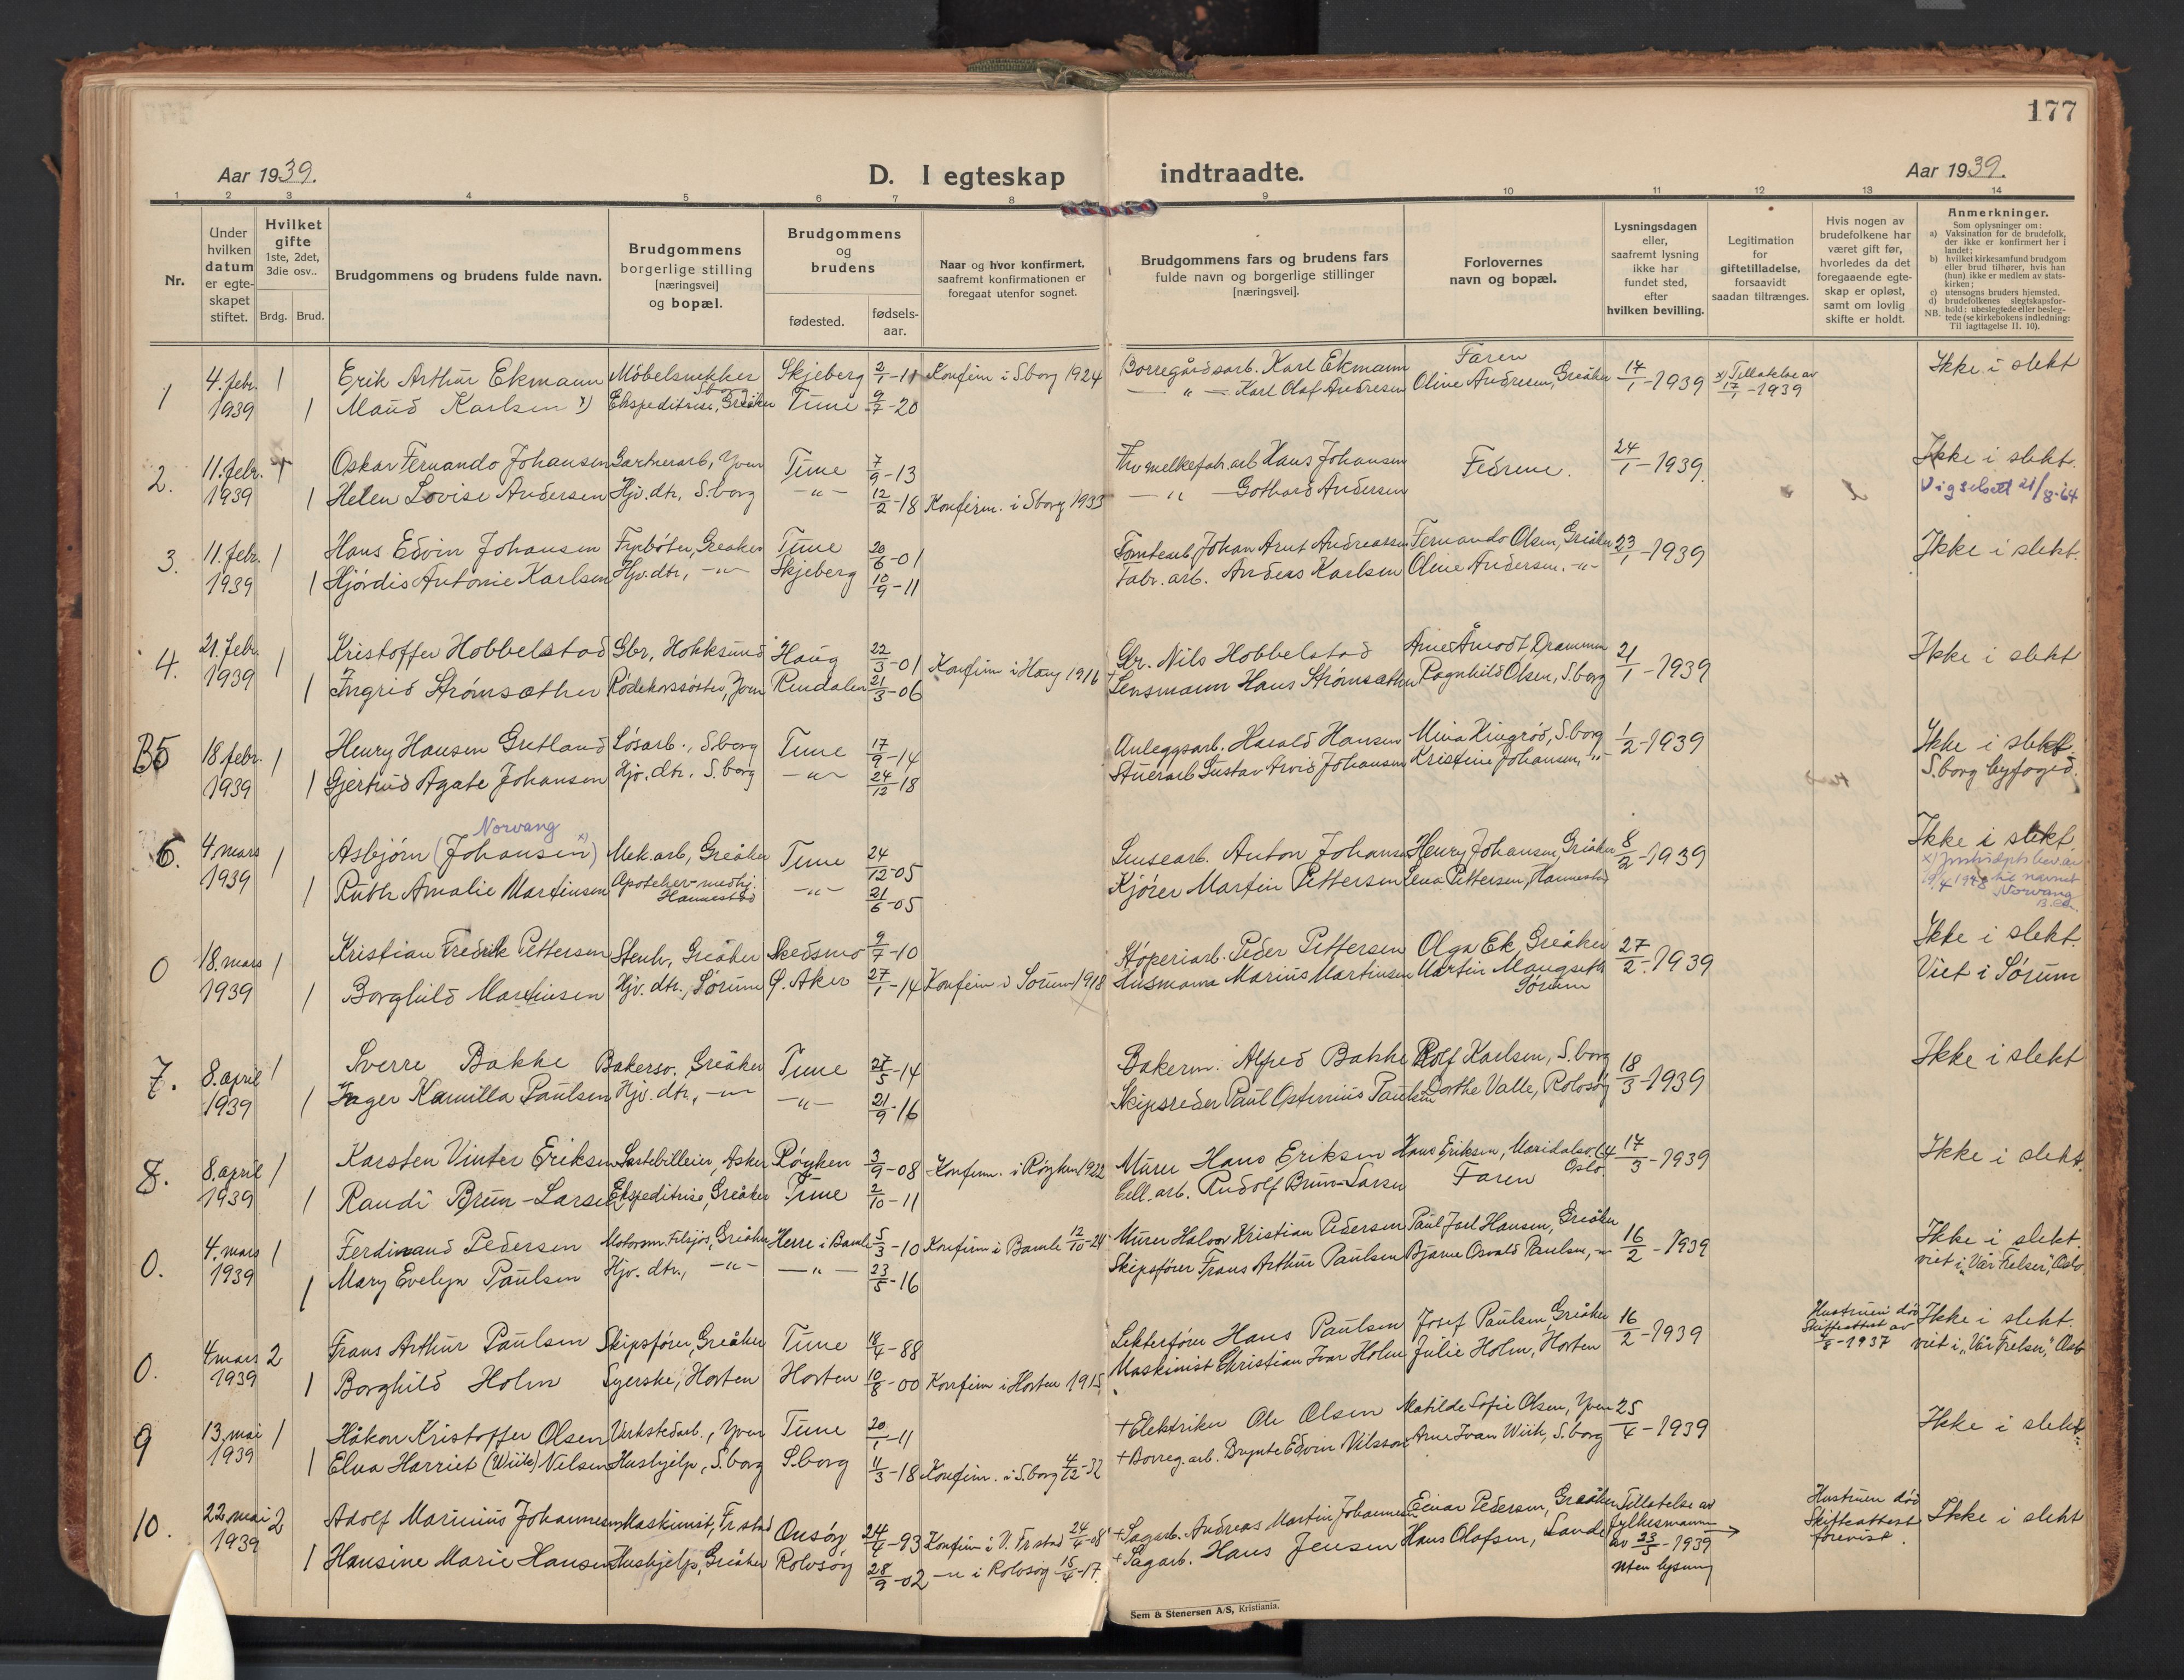 177
Aar 1939.
D. I egteskap indtraadte.
Aar 1939.
1 2 3 4 5 6 7 8 9 10 11 12 13 14
Nr.
Under hvilken datum er egteskapet stiftet.
Hvilket gifte 1ste, 2det, 3die osv..
Brdg. Brud.
Brudgommens og brudens fulde navn.
Brudgommens borgerlige stilling [næringsvei] og bopæl.
Brudgommens og brudens
fødested.
fødsels-aar.
Naar og hvor konfirmert, saafremt konfirmationen er foregaat utenfor sognet.
Brudgommens fars og brudens fars fulde navn og borgerlige stillinger [næringsvei].
Forlovernes navn og bopæl.
Lysningsdagen eller, saafremt lysning ikke har fundet sted, efter hvilken bevilling.
Legitimation for giftetilladelse, forsaavidt saadan tiltrænges.
Hvis nogen av brudefolkene har været gift før, hvorledes da det foregaaende egteskap er opløst, samt om lovlig skifte er holdt.
Anmerkninger.
Som oplysninger om:
a) Vaksination for de brudefolk, der ikke er konfirmert her i landet;
b) hvilket kirkesamfund brudgom eller brud tilhører, hvis han (hun) ikke er medlem av statskirken;
c) utensogns bruders hjemsted.
d) brudefolkenes slegtskapsforhold: ubeslegtede eller beslegtede (se kirkebokens indledning: Til iagttagelse II. 10).
NB.
1 4. febr. 1 Erik Arthur Ekmann Möbelsnekker S.borg Skjeberg 2/1-11 Konfirm i S.borg 1924 Borregårdsarb. Karl Ekmann Faren 17/1-1939 x) Tillatelse av 17/1-1939 Ikke i slekt
1939 1 Maud Karlsen x) Ekspeditrise, Greåker Tune 9/7-20 — " — Karl Olaf Andresen Oline Andresen, Greåker
2. 11. febr. 1 Oskar Fernando Johansen Gartnerarb, Yven Tune 7/9-13 melkefab.arb Hans Johansen Fedrene. 24/1-1939 Ikke i slekt.
1939 1 Helen Lovise Andersen Hjv. dtr, S.borg -"- 12/2-18 Konfirm. i S.borg 1933 — " — Gothard Andersen Vigselsatt 21/8-64
3. 11. febr. 1 Hans Edvin Johansen Fyrbøter, Greåker Tune 20/6-01 Tomtearb. Johan Arnt Andreassen Fernando Olsen, Greåker 23/1-1939 Ikke i slekt.
1939 1 Hjördis Antonie Karlsen Hjv. dtr, -"- Skjeberg 10/9-11 Fabr. arb. Anders Karlsen Oline Andersen. -"-
4. 21. febr. 1 Kristoffer Hobbelstad Gbr, Hokksund Haug 22/3-01 Konfirm i Haug 1916 Gbr. Nils Hobbelstad Arne Åmodt Drammen 21/1-1939 Ikke i slekt
1939 1 Ingrid Strømsæther Rödekorssöster, Yven Rendalen 21/3-06 Lensmann Hans Strømsæther Ragnhild Olsen, S.borg
B5 18 febr. 1 Henry Hansen Gretland Løsarb., S.borg Tune 17/9-14 Anleggsarb. Harald Hansen Mina Kingrød, S.borg 1/2-1939 Ikke i slekt.
1939 1 Gjertrud Agate Johansen Hjv. dtr. S.borg -"- 24/12-18 Stuerarb Gustav Arvid Johansen Kristine Johansen, -"- S.borg byfoged.
Norvang
6. 4. mars 1 Asbjørn (Johansen x)) Mek. arb, Greåker Tune 24/12-05 Linsearb. Anton Johansen Henry Johansen, Greåker 8/2-1939 Ikke i slekt.
1939 1 Ruth Amalie Martinsen Apoteker-medhj. Hannestad -"- 21/6-05 Kjörer Martin Pettersen Lena Pettersen, Hannestad x) Justisdpts bev. av 19/4 1948 til navnet Norvang
0 18. mars 1 Kristian Fredrik Pettersen Stenh, Greåker Skedsmo 9/7-10 Stöperiarb. Peder Pettersen Olga Ek, Greåker 27/2-1939 Ikke i slekt.
1939 1 Borghild Martinsen Hjv. dtr., Sörum Ø. Aker 27/1-14 Konfirm i Sörum 1918 Husmann Marius Martinsen Martin Maugseth Sörum Viet i Sörum
7. 8. april 1 Sverre Bakke Bakersv. Greåker Tune 27/5-14 Bakerm. Alfred Bakke Rolf Karlsen, S.borg 18/3-1939 Ikke i slekt
1939 1 Inger Kamilla Paulsen Hjv. dtr, -"- -"- 21/9-16 Skipsreder Paul Ostinius Paulsen Dorthe Valle, Rolvsöy
8. 8. april 1 Karsten Vinter Eriksen Lastebileier, Asker Röyken 3/9-08 Konfirm. i Röyken 1922 Murer Hans Eriksen Hans Eriksen, Maridalsv. 64 Oslo. 17/3-1939 Ikke i slekt.
1939 1 Randi Brun-Larsen Ekspeditrise, Greåker Tune 2/10-11 Cell. arb. Rudolf Brun-Larsen Faren
0. 4. mars 1 Ferdinand Pedersen Motorm. Tilsjös, Greåker Herre i Bamle 5/3-10 Konfirm i Bamle 12/10-24 Murer Halvor Kristian Pedersen Paul Joel Hansen, Greåker 16/2-1939 Ikke i slekt.
1939 1 Mary Evelyn Paulsen Hjv. dtr, -"- -"- 23/5-16 Skipsförer Frans Arthur Paulsen Bjarne Osvald Paulsen, -"- viet i „Vår Frelser", Oslo
0. 4. mars 2 Frans Arthur Paulsen Skipsförer, Greåker Tune 18/4-88 Lekterförer Hans Paulsen Josef Paulsen, Greåker 16/2-1939 Hustruen död Skifteattest av 4/8-1937 Ikke i slekt.
1939 1 Borghild Holm Syerske, Horten Horten 10/8-00 Konfirm i Horten 1915, Maskinist Christian Ivar Holm Julie Holm, Horten viet i „Vår Frelser", Oslo
9 13. mai 1 Håkon Kristoffer Olsen Verkstedarb., Yven Tune 20/1-11 +Elektriker Ole Olsen Matilde Sofie Olsen, Yven 25/4-1939 Ikke i slekt.
1939 1 Elna Harriet (Wiik) Nilsen Hushjelp, S.borg S.borg 11/3-18 Konfirm. i S.borg 4/12-32 +Borreg. arb. Brynte Edvin Nilsson Arne Ivan Wiik, S.borg
10. 22. mai 2 Adolf Marinius Johannesen Maskinist, Fr.stad Onsöy 24/4-93 Konfirm i V. Fr.stad 24/4-08 +Sagarb. Andreas Martin Johannesen Einar Pedersen, Greåker Tillatelse av fylkesmann av 23/5-1939 uten lysning → Hustruen död Skifteattest forevist. Ikke i slekt
1939 1 Hansine Marie Hansen Hushjelp, Greåker Rolvsöy 28/9-02 -"- i Rolvsöy 15/4-17. +Sagarb. Hans Jensen Hans Olafsen, Sande
Sem & Stenersen A/S, Kristiania.